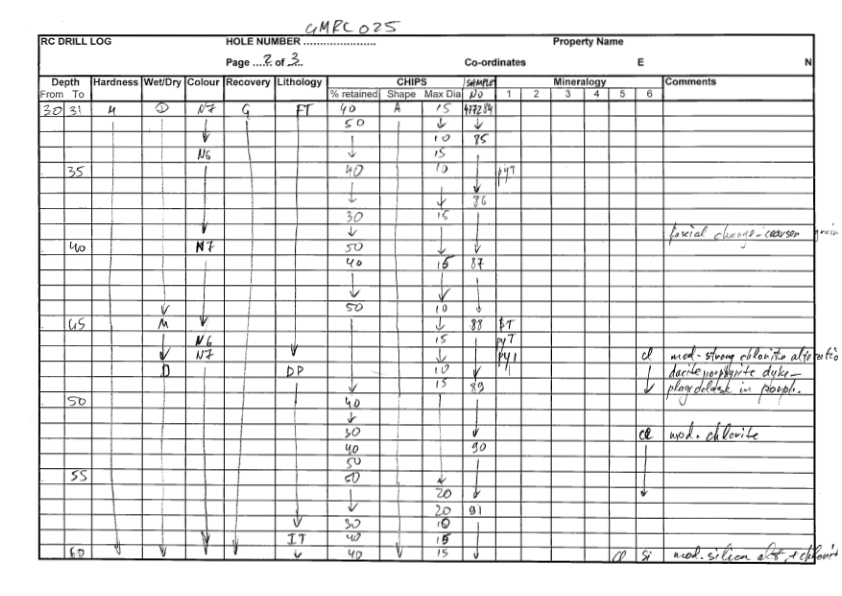 GMRC 025
RC DRILL LOG HOLE NUMBER ........................ Property Name
Page ...2. of .3. Co-ordinates E N
Depth Hardness Wet/Dry Colour Recovery Lithology CHIPS SAMPLE Mineralogy Comments
From To % retained Shape Max Dia No 1 2 3 4 5 6
30 31 M D N7 G FT 40 A 15 417284
50
10 85
N6 15
35 40 10 py T
86
30 15
facial change - coarser grain
40 N7 50
40 15 87
50 10
45 M 88 PT
N6 15 py T
N7 py 1 cl mod - strong chlorite alteratio
D DP 10 dacite porphyrite dyke -
15 89 in porph.
50 40
30 cl mod. chlorite
40 90
50
55 50
20
20 91
30 10
IT 40 15
60 40 15 cl Si mod. silica alt, + chlorit